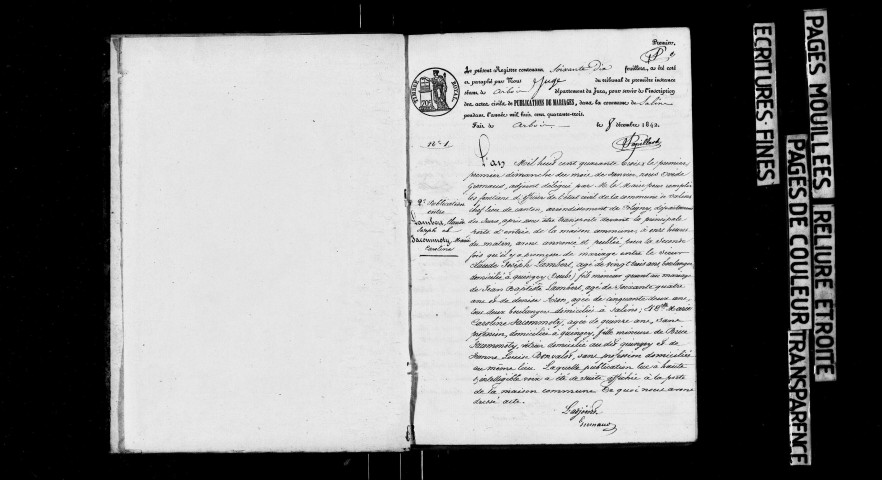 Premier,
Le présent Registre contenant Soixante Dix feuillets, a été coté
et paraphé par Nous Juge du tribunal de première instance
séant de Arbois département du Jura, pour servir de l'inscription
des actes civils de PUBLICATIONS DE MARIAGES, dans la commune de Salins
pendant l'année mil huit cent quarante-trois.
Fait de Arbois le 8 décembre 1842.
TIMBRE ROYAL
N° 1
2e Publication
entre
Lambert, Claude
Joseph et
Jacommoty, Marie
Caroline
L'an Mil huit cent quarante trois le premier,
premier dimanche du mois de Janvier, nous
adjoint délégué par M. le Maire pour remplir
les fonctions d'officier de l'état civil de la commune de Salins
chef lieu de canton, arrondissement de Poligny, département
du Jura, après nous être transporté devant la principale
porte d'entrée de la maison commune, à onze heures
du matin, avons annoncé et publié pour la seconde
fois qu'il y a promesse de mariage entre le sieur
Claude Joseph Lambert, agé de vingt trois ans boulanger,
domicilié à quingey (Doubs) fils mineur quant au mariage
de Jean Baptiste Lambert, agé de Soixante quatre
ans et de denise agée de cinquante deux ans,
tous deux boulangers domiciliés à Salins; & Dlle Marie
Caroline Jacommoty, agée de quinze ans, Sans
profession, domiciliée à quingey, fille mineure de
Jacommoty, domicilié au dit quingey et de
Jeanne Louise Bonvalot, sans profession domiciliée
au même lieu. Laquelle publication lue à haute
& intelligible voix a été de suite affichée à la porte
de la maison commune De quoi nous avons
dressé acte.
L'adjoint
PAGES MOUILLEES RELIURE ETROITE
PAGES DE COULEUR TRANSPARENCE
ECRITURES FINES